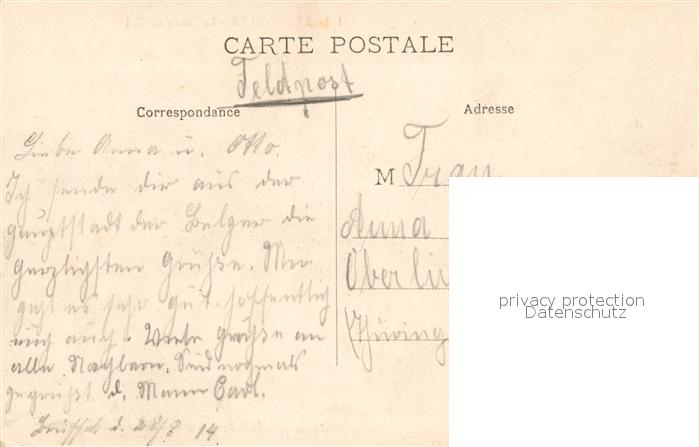 CARTE POSTALE
Feldpost
Correspondance
Adresse
Liebe Anna u. Otto.
Ich sende dir aus der
Hauptstadt der Belger die
herzligsten Grüße. Mir
geht es sehr gut. hoffentlich
auch. Viele grüße an
alle Nachbarn. Seid nochmals
gegrüßt d. Mann Carl.
Brüssel d. 28/8 14
M Frau
Anna
Ober
(Thüring
privacy protection
Datenschutz